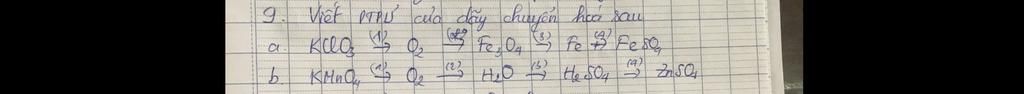 9. Viết PTPƯ của dãy chuyển hoá sau
a. KClO3 (1)→ O2 (2)→ Fe3O4 (3)→ Fe (4)→ FeSO4
b. KMnO4 (1)→ O2 (2)→ H2O (3)→ H2SO4 (4)→ ZnSO4